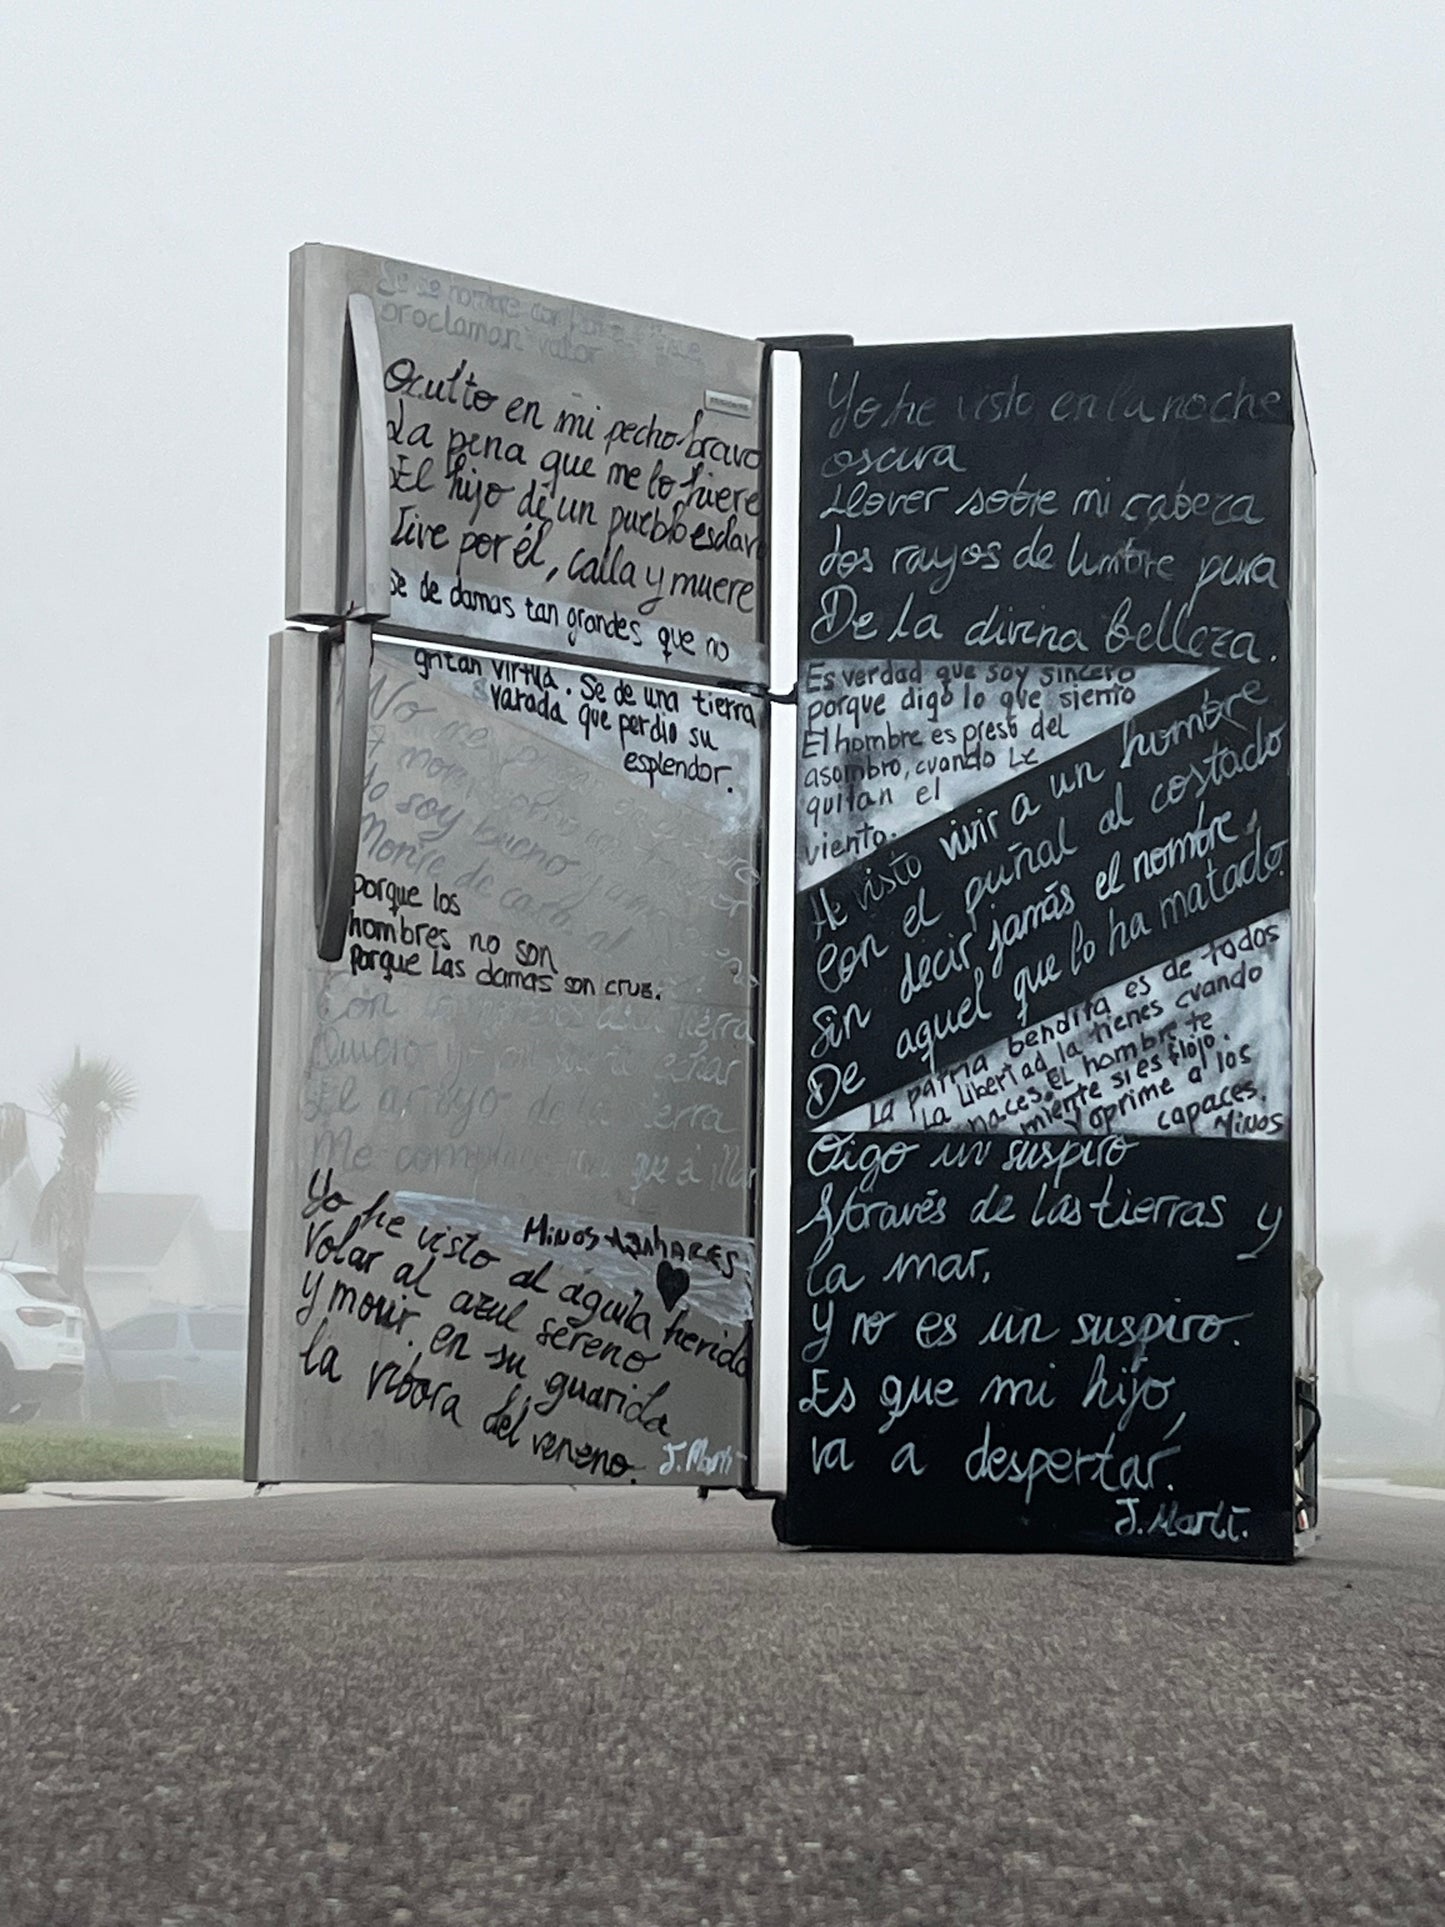 proclaman valor
Oculto en mi pecho bravo
La pena que me lo hiere
El hijo de un pueblo esclavo
Vive por él, calla y muere
Se de damas tan grandes que no
gritan virtud. Se de una tierra
varada que perdio su
esplendor.
No me
Yo soy bueno y
Moriré de cara al
porque los
hombres no son
porque las damas son crue.
Con tierra
Quiero yo mi echar
El arroyo de la sierra
Me complace que
Minos-Azahares
Yo he visto al águila herida
Volar al azul sereno
Y morir en su guarida
la vibora del veneno.
J. Martí
Yo he visto en la noche
oscura
Llover sobre mi cabeza
Los rayos de lumbre pura
De la divina belleza.
Es verdad que soy sincero
porque digo lo que siento
El hombre es preso del
asombro, cuando le
quitan el
viento.
He visto vivir a un hombre
Con el puñal al costado
Sin decir jamás el nombre,
De aquel que lo ha matado.
La patria bendita es de todos
La libertad la tienes cuando
naces. El hombre te
miente si es flojo.
Y oprime a los
capaces.
Minos
Oigo un suspiro
Através de las tierras y
la mar,
Y no es un suspiro.
Es que mi hijo,
va a despertar.
J. Martí.